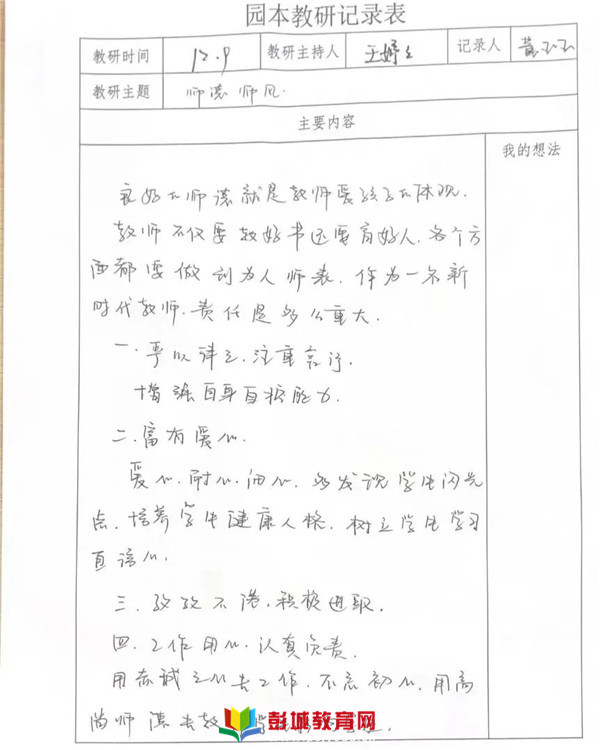 园本教研记录表
教研时间 12.9 教研主持人 王婷 记录人
教研主题 师德师风.
主要内容
我的想法
良好的师德就是教师爱孩子的体现.
教师不仅要教好书还要育好人.各个方
面都要做到为人师表.作为一名新
时代教师.责任是多么重大.
一.严以律己.注重言行.
增强自身自控能力.
二.富有爱心.
爱心.耐心.细心.多发现学生闪光
点.培养学生健康人格.树立学生学习
自信心.
三.孜孜不倦.积极进取.
四.工作用心.认真负责.
用赤诚之心去工作.不忘初心.用高
尚师德去教
彭城教育网